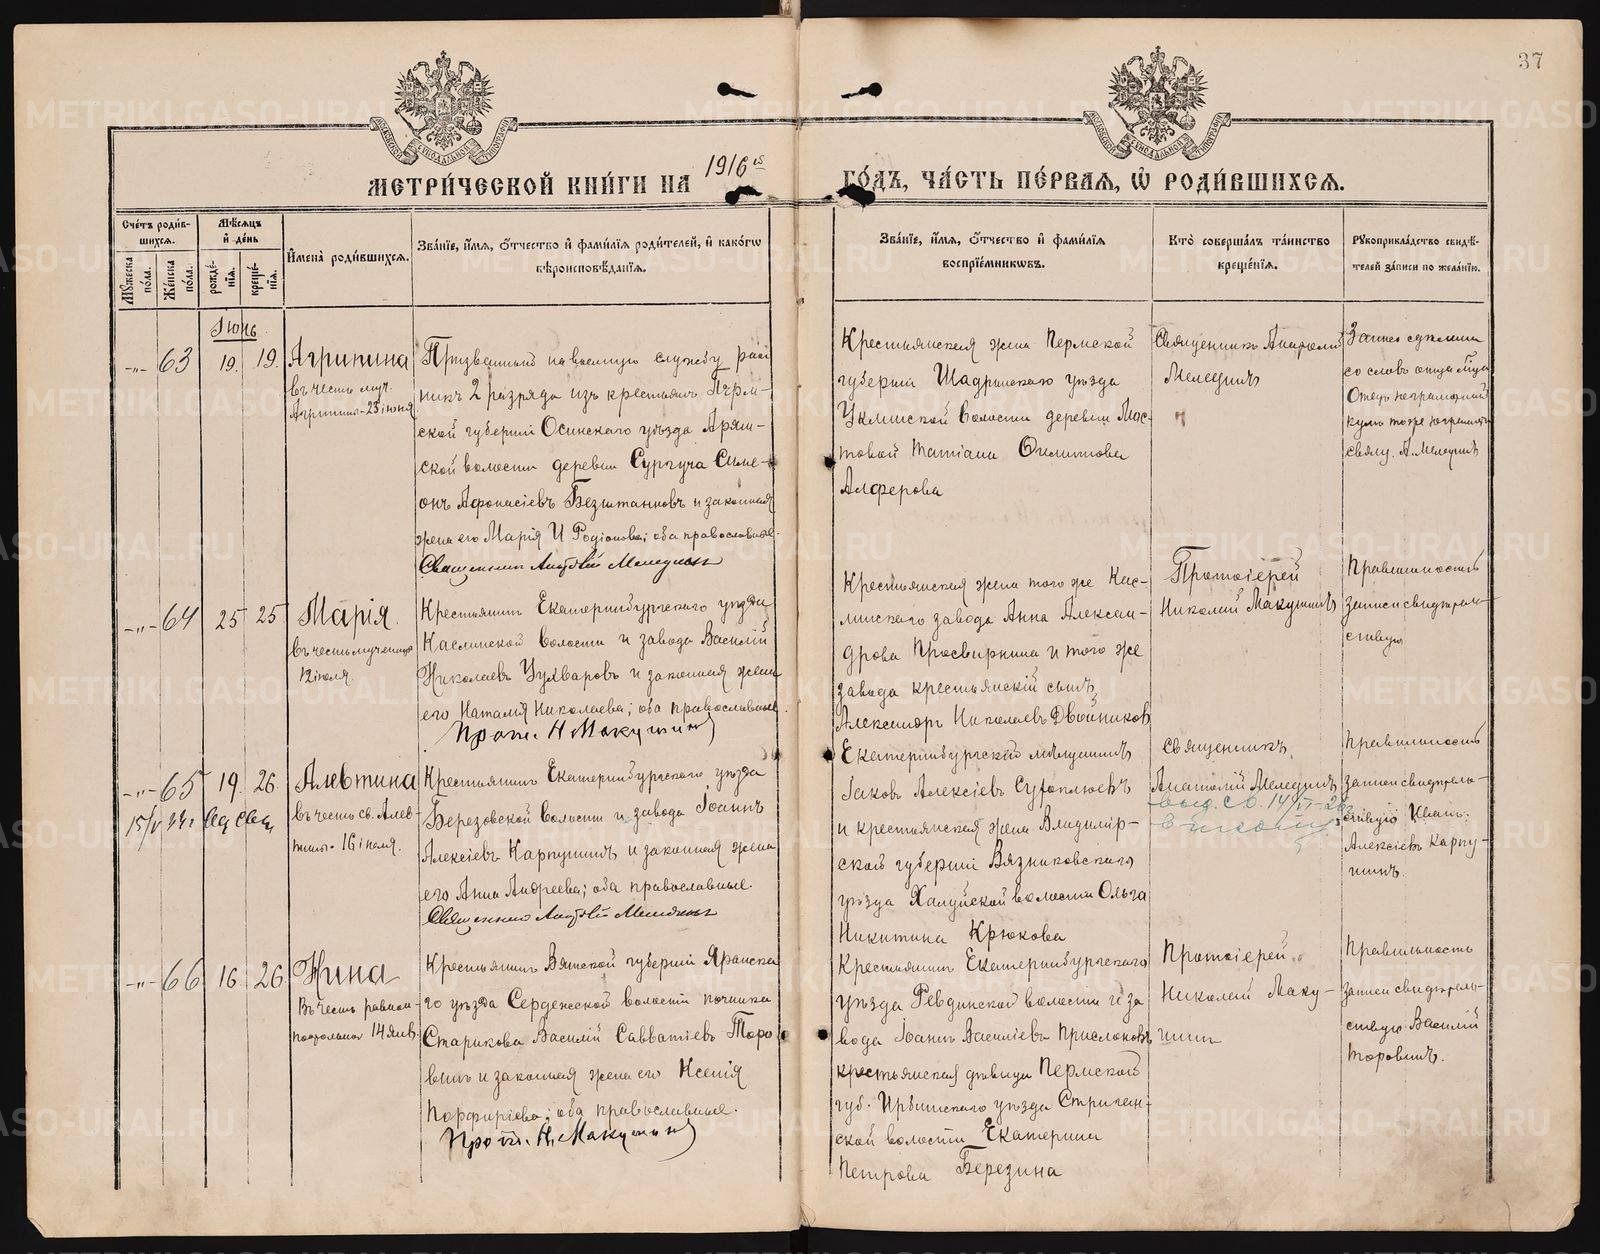 37
МЕТРИ́ЧЕСКОЙ КНИ́ГИ НА 1916 й
ГО́ДЪ, ЧА́СТЬ ПЕ́РВАЯ, Ѡ РОДИ́ВШИХСЯ.
Сче́тъ роди́в-
шихся.
Мѣ́сяцъ
и҆ де́нь
И҆мена̀ роди́вшихся.
Зва́нїе, и҆́мя, ѻ҆́тчество и҆ фами́лїя роди́телей, и҆ како́гѡ
вѣроисповѣ́данїя.
Мꙋ́жеска
по́ла.
Же́нска
по́ла.
рожде́-
нїя.
креще́-
нїя.
Зва́нїе, и҆́мя, ѻ҆́тчество и҆ фами́лїя
воспрїе́мникѡвъ.
Кто̀ соверша́лъ та́инство
креще́нїя.
Рꙋкоприкла́дство свидѣ́-
телей за́писи по жела́нїю.
Іюнь
-"- 63 19. 19. Агрипина
въ честь муч.
Агрипины - 23 іюня
Призванный на военную службу рат
никъ 2 разряда изъ крестьянъ Перм-
ской губерніи Осинскаго уѣзда Аряж-
ской волости деревни Сургуча Симе-
онъ Афонасіевъ Безштанковъ и законная
жена его Марія И Родіонова; оба православные.
Священникъ Анатолій Мелединъ
Крестьянская жена Пермской
губерніи Шадринскаго уѣзда
волости деревни Мос-
товой Татіана Филиппова
Алферова
Священникъ Анатолій
Мелединъ
со словъ отца
Отецъ неграмотный
кума тоже неграмотн
свящ. А. Мелединъ
-"- 64 25 25 Марія.
въ честь мученицы
12 іюля.
Крестьянинъ Екатеринбургскаго уѣзда
Каслинской волости и завода Василій
Николаевъ и законная жена
его Наталія Николаева; оба православные.
Прот. Н Макушинъ
Крестьянская жена того же Кас-
линскаго завода Анна Алексан-
дрова Просвирнина и того же
завода крестьянскій сынъ
Александръ Николаевъ Двойниковъ
Протоіерей
Николай Макушинъ
Правильность
записи свидѣтель-
ствую
-"- 65 19. 26. Алевтина
въ честь св. Алев-
тины - 16 іюля.
Крестьянинъ Екатеринбургскаго уѣзда
Березовской волости и завода Іоаннъ
Алексіевъ Карпушинъ и законная жена
его Анна Андреева; оба православные.
Священникъ Анатолій Мелединъ
Екатеринбургской мѣщанинъ
Іаковъ Алексіевъ
и крестьянская жена Владимір-
ской губерніи Вязниковскаго
уѣзда Холуйской волости Ольга
Никитина Крюкова
Священникъ
Анатолій Мелединъ
Правильность
записи свидѣтель-
ствую Иванъ
Алексіевъ Карпу-
шинъ.
-"- 66 16 26 Нина
Въ честь равноа-
постольной 14 янв.
Крестьянинъ Вятской губерніи Яранска
го уѣзда Сердежской волости починка
Старикова Василій Савватіевъ Торо
винъ и законная жена его Ксенія
Порфиріева; оба православные.
Прот. Н. Макушинъ
Крестьянинъ Екатеринбургскаго
уѣзда Ревдинской волости и за
вода Іоаннъ Василіевъ Прислоновъ
крестьянская дѣвица Пермской
губ. Ирбитскаго уѣзда Стриган-
ской волости Екатерина
Петрова Березина
Протоіерей
Николай Маку-
шинъ
Правильность
записи свидѣтель-
ствую Василій
Торовинъ.
METRIKI.GASO-URAL.RU